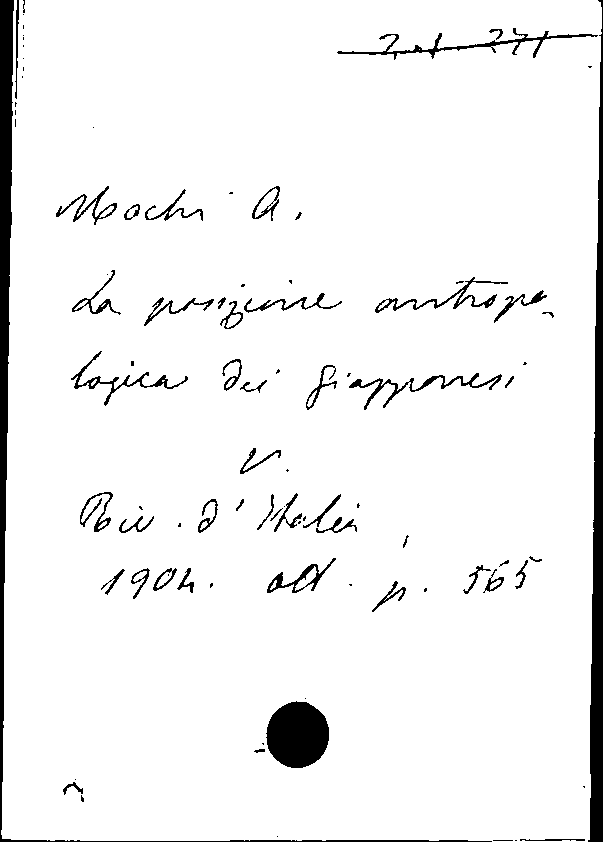 Mochi A.
La posizione antropo-
logica dei giapponesi
V.
Riv. d'Italia,
1904. ott. p. 565